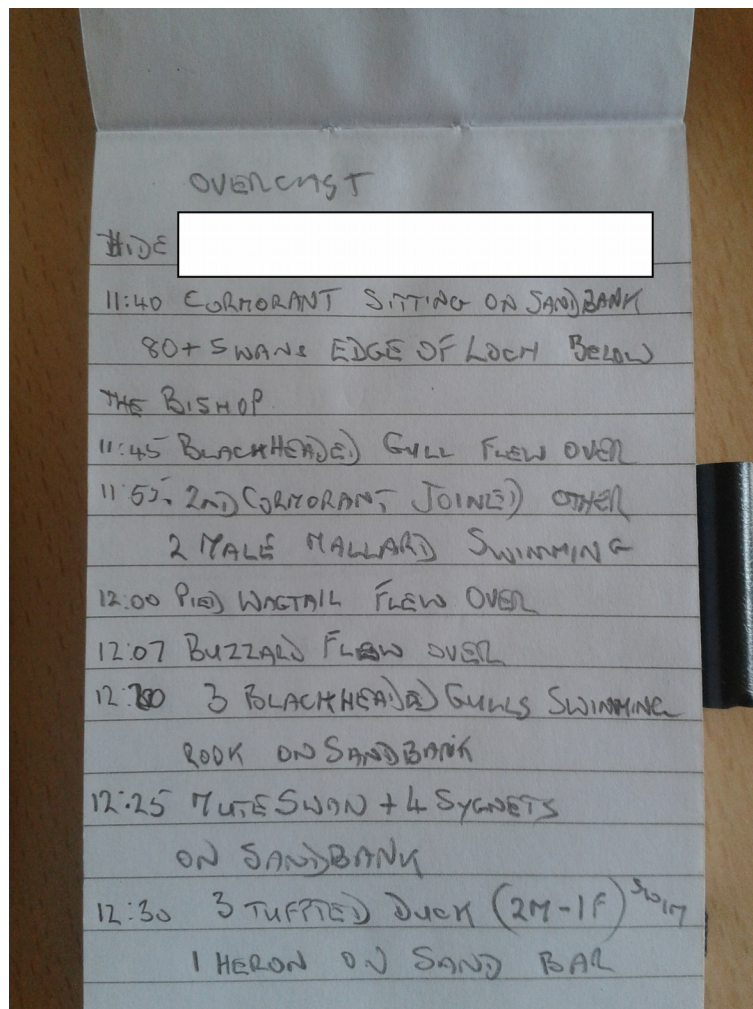 OVERCAST
HIDE
11:40 CORMORANT SITTING ON SANDBANK
80+ SWANS EDGE OF LOCH BELOW
THE BISHOP
11:45 BLACKHEADED GULL FLEW OVER
11:55 2ND CORMORANT JOINED OTHER
2 MALE MALLARD SWIMMING
12:00 PIED WAGTAIL FLEW OVER
12:07 BUZZARD FLEW OVER
3 BLACKHEADED GULLS SWIMMING
ROOK ON SANDBANK
12:25 MUTE SWAN + 4 SYGNETS
ON SANDBANK
12:30 3 TUFTED DUCK (2M-1F) SWIM
1 HERON ON SAND BAR